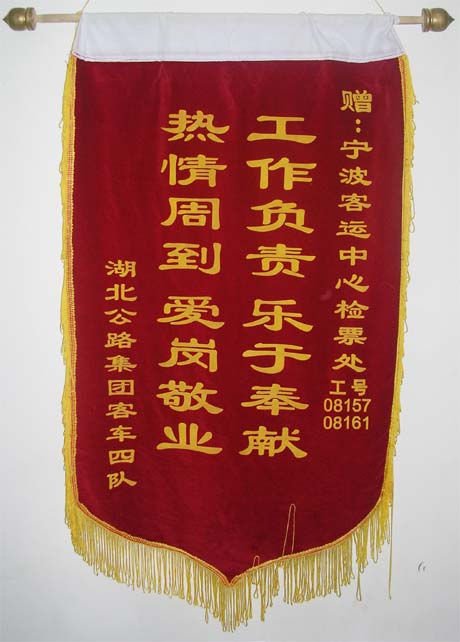 赠：宁波客运中心检票处
工号
08157
08161
工作负责 乐于奉献
热情周到 爱岗敬业
湖北公路集团客车四队